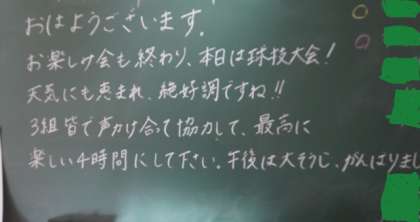 おはようございます。
お楽しみ会も終わり、本日は球技大会!
天気にも恵まれ、絶好調ですね!!
3組皆で声かけ合って協力して、最高に
楽しい4時間にして下さい。午後は大そうじ、がんばりまし